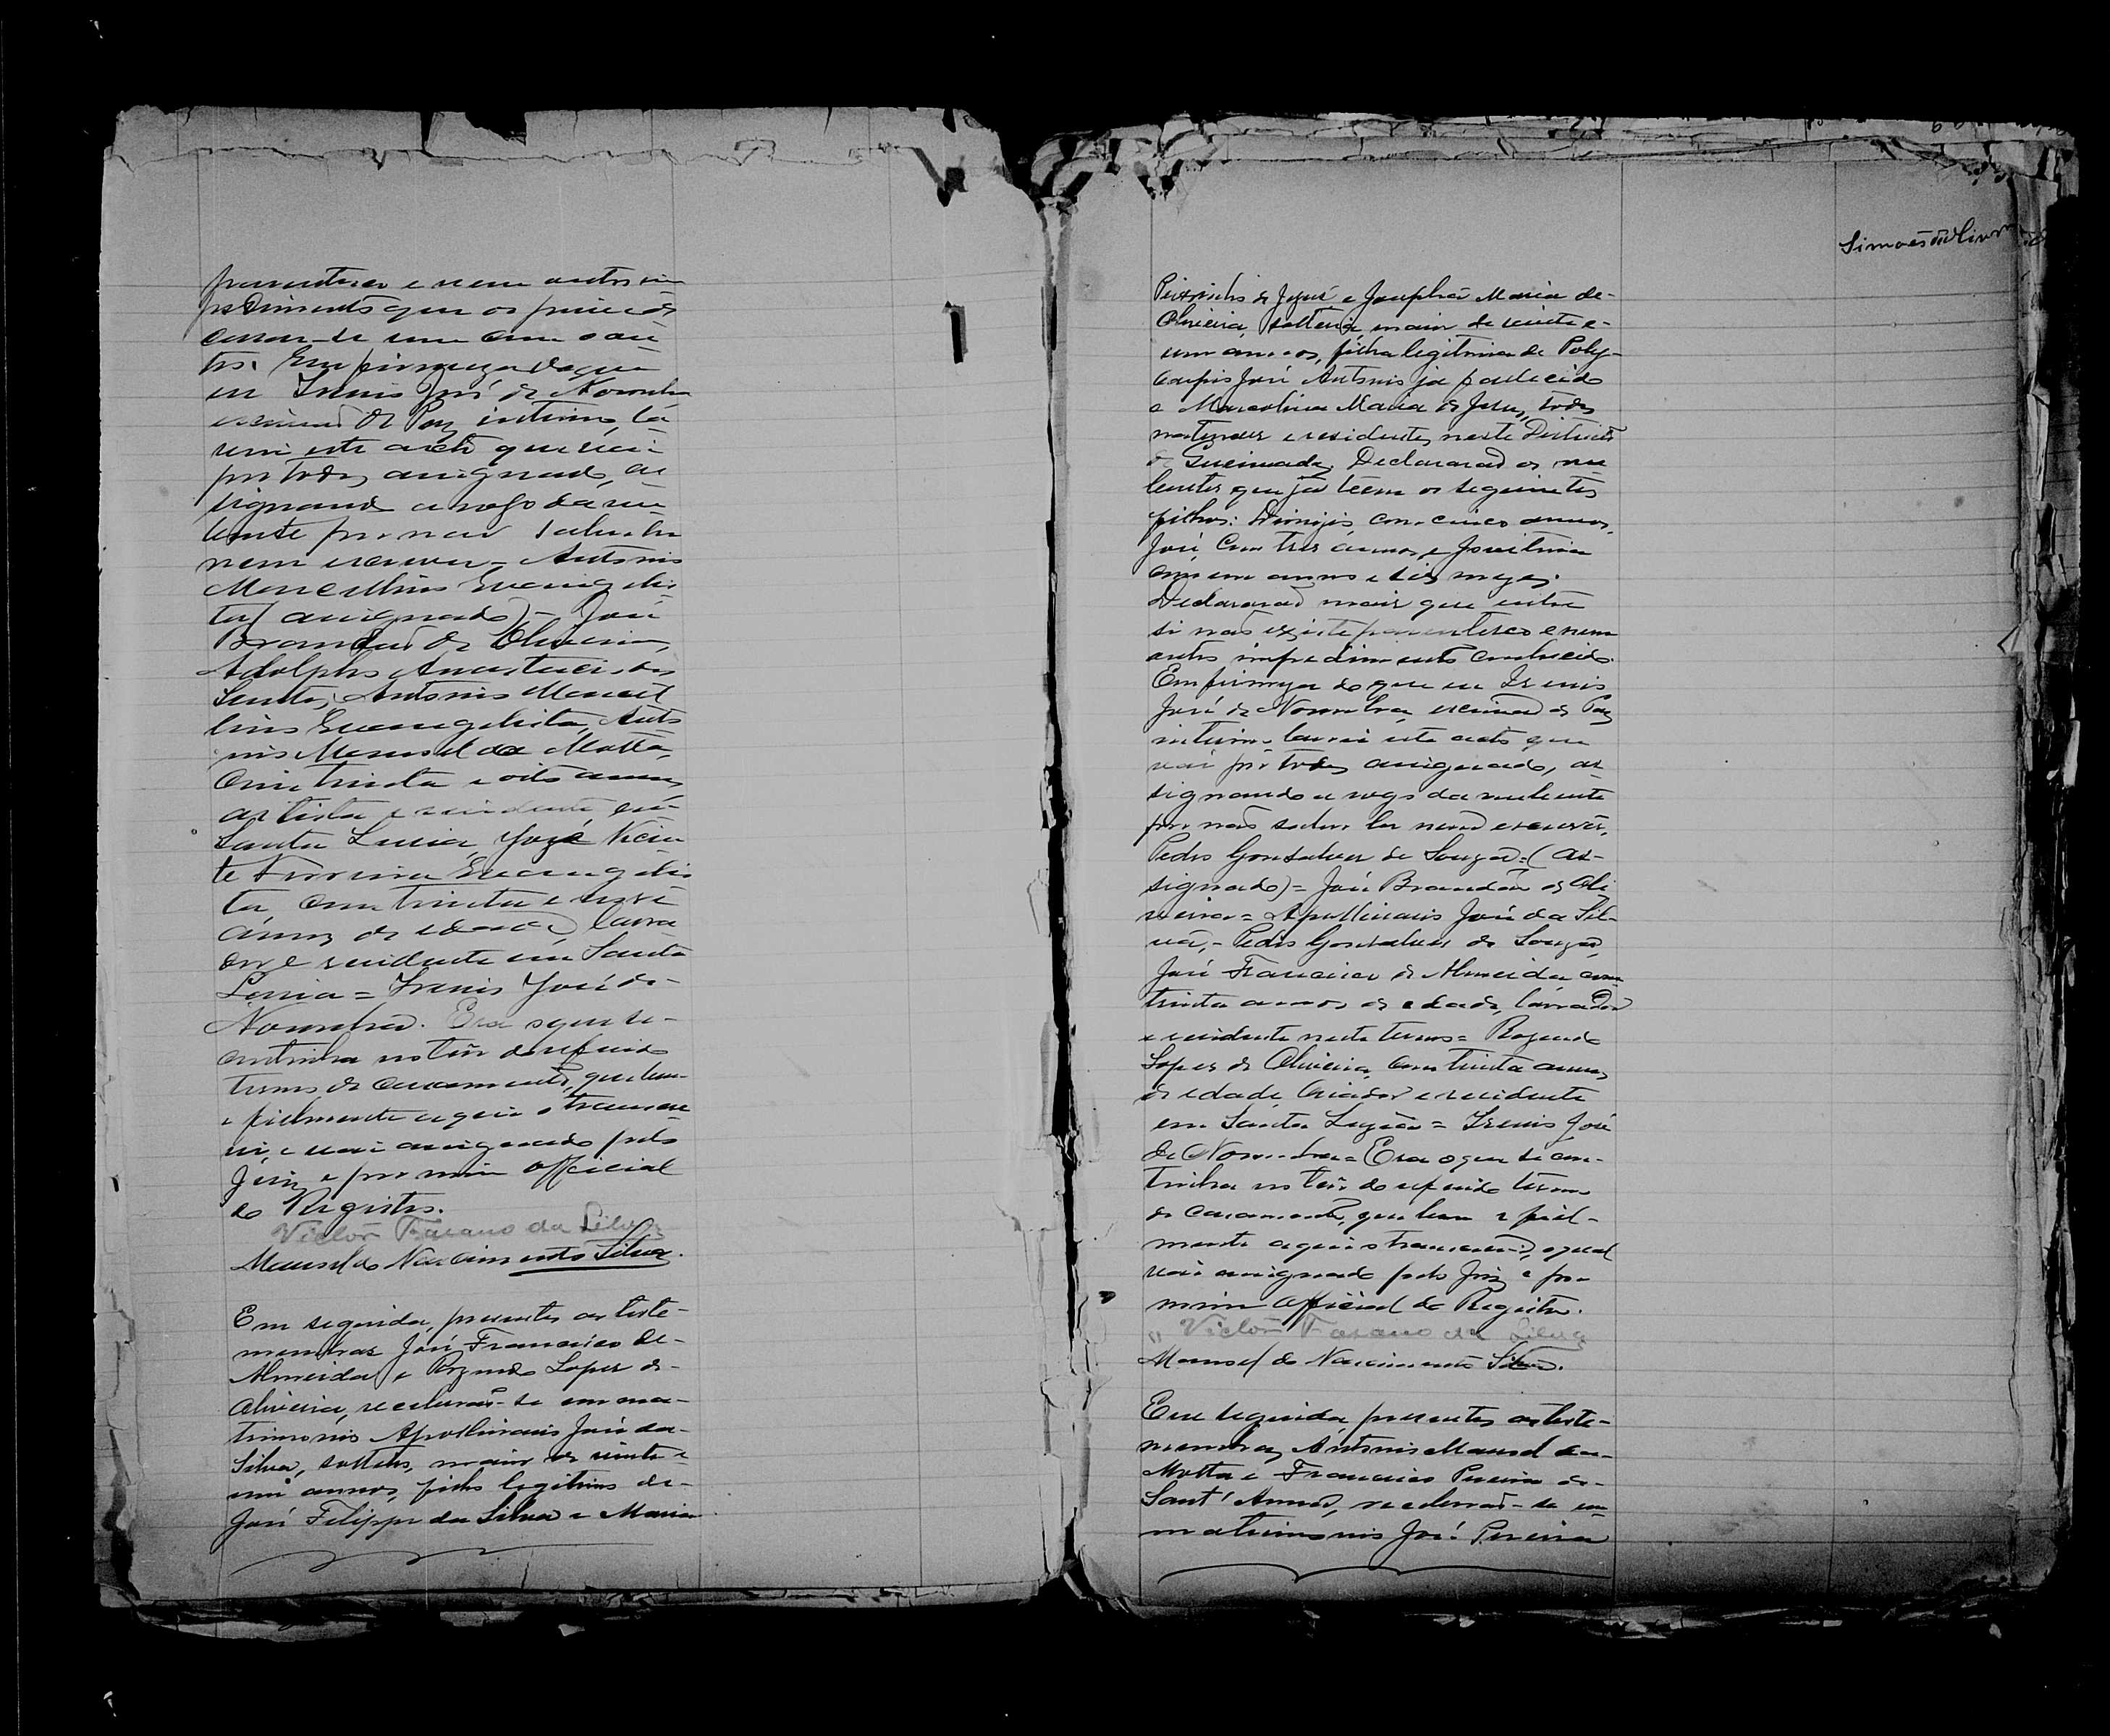 parentesco e nem outro im
pedimento que os prive de
casar-se um com o ou
tro. Em firmeza do que
eu Irenio José de Noronha
escrivão de Paz interino, la
vrei este acto que vai
por todos assignado, as
signando a rogo da nu
bente por não saber ler
nem escrever = Antonio
Marcellino Evangelis
ta (assignado) = José
Brandão de Oliveira,
Adolpho Anastacio dos
Santos, Antonio Marcel
lino Evangelista, Anto
nio Manoel da Motta,
com trinta e oito annos
artista e residente em
Santa Luzia, José Vicen
te Ferreira Evangelis
ta com trinta e nove
annos de idade, lavra
dor e residente em Santa
Luzia = Irenio José de
Noronha. Era o que se
continha no teôr do referido
termo de casamento, que bem
e fielmente aqui o transcre
vi, e vai assignado pelo
Juiz e por mim official
do Registro.
Victor Fasano da Silva
Manoel do Nascimento Silva.
Em seguida, presentes as teste-
munhas José Francisco de
Almeida e Rozendo Lopes de
Oliveira, receberão-se em ma-
trimonio Apollinario José da
Silva, solteiro, maior de vinte e
um annos, filho legitimo de
José Filippe da Silva e Maria
Simões de Oliveira
de Jesus e Josepha Maria de
Oliveira, solteira maior de vinte e
um annos, filha legitima de Poly-
carpio José Antonio já fallecido
e Marcolina Maria de Jesus, todos
naturaes e residentes neste Districto
de Queimadas. Declararão os nu
bentes que já teem os seguintes
filhos: Dionizio, com cinco annos,
José, com tres annos, e Jovitina
com um anno e seis mezes.
Declararão mais que entre
si não existe parentesco e nem
outro impedimento conhecido.
Em firmeza do que eu Irenio
José de Noronha, escrivão de Paz
interino lavrei este acto que
vai por todos assignado, as
signando a rogo da nubente
por não saber ler nem escrever,
Pedro Gonsalves de Souza = (as-
signado) = José Brandão de Oli
veira = Apollinario José da Sil-
va, = Pedro Gonsalves de Souza,
José Francisco de Almeida com
trinta annos de edade, lavrador
e residente neste termo = Rozendo
Lopes de Oliveira, com trinta annos
de edade, criador e residente
em Santa Luzia = Irenio José
de Noronha = Era o que se con-
tinha no teôr do referido termo
de casamento, que bem e fiel-
mente aqui o transcrevi, o qual
vai assignado pelo Juiz e por
mim Official do Registro.
Victor Fasano da Silva
Manoel do Nascimento Silva.
Em seguida, presentes as teste-
munhas, Antonio Manoel da
Motta e Francisco Pereira de
Sant'Anna, receberão-se em
matrimonio José Pereira